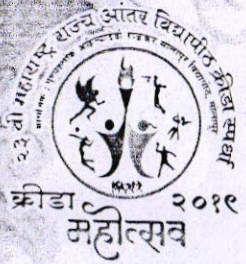 २३ वी महाराष्ट्र राज्य आंतर विद्यापीठ क्रीडा स्पर्धा
क्रीडा २०१९
महोत्सव